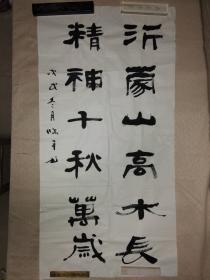 沂蒙山高水长
精神千秋萬歲
戊戌冬月